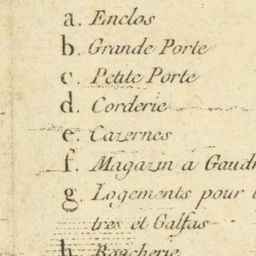 a. Enclos
b. Grande Porte
c. Petite Porte
d. Corderie
e. Cazernes
f. Magazin a Gaudr
g. Logements pour l
tres et Galfas
h.